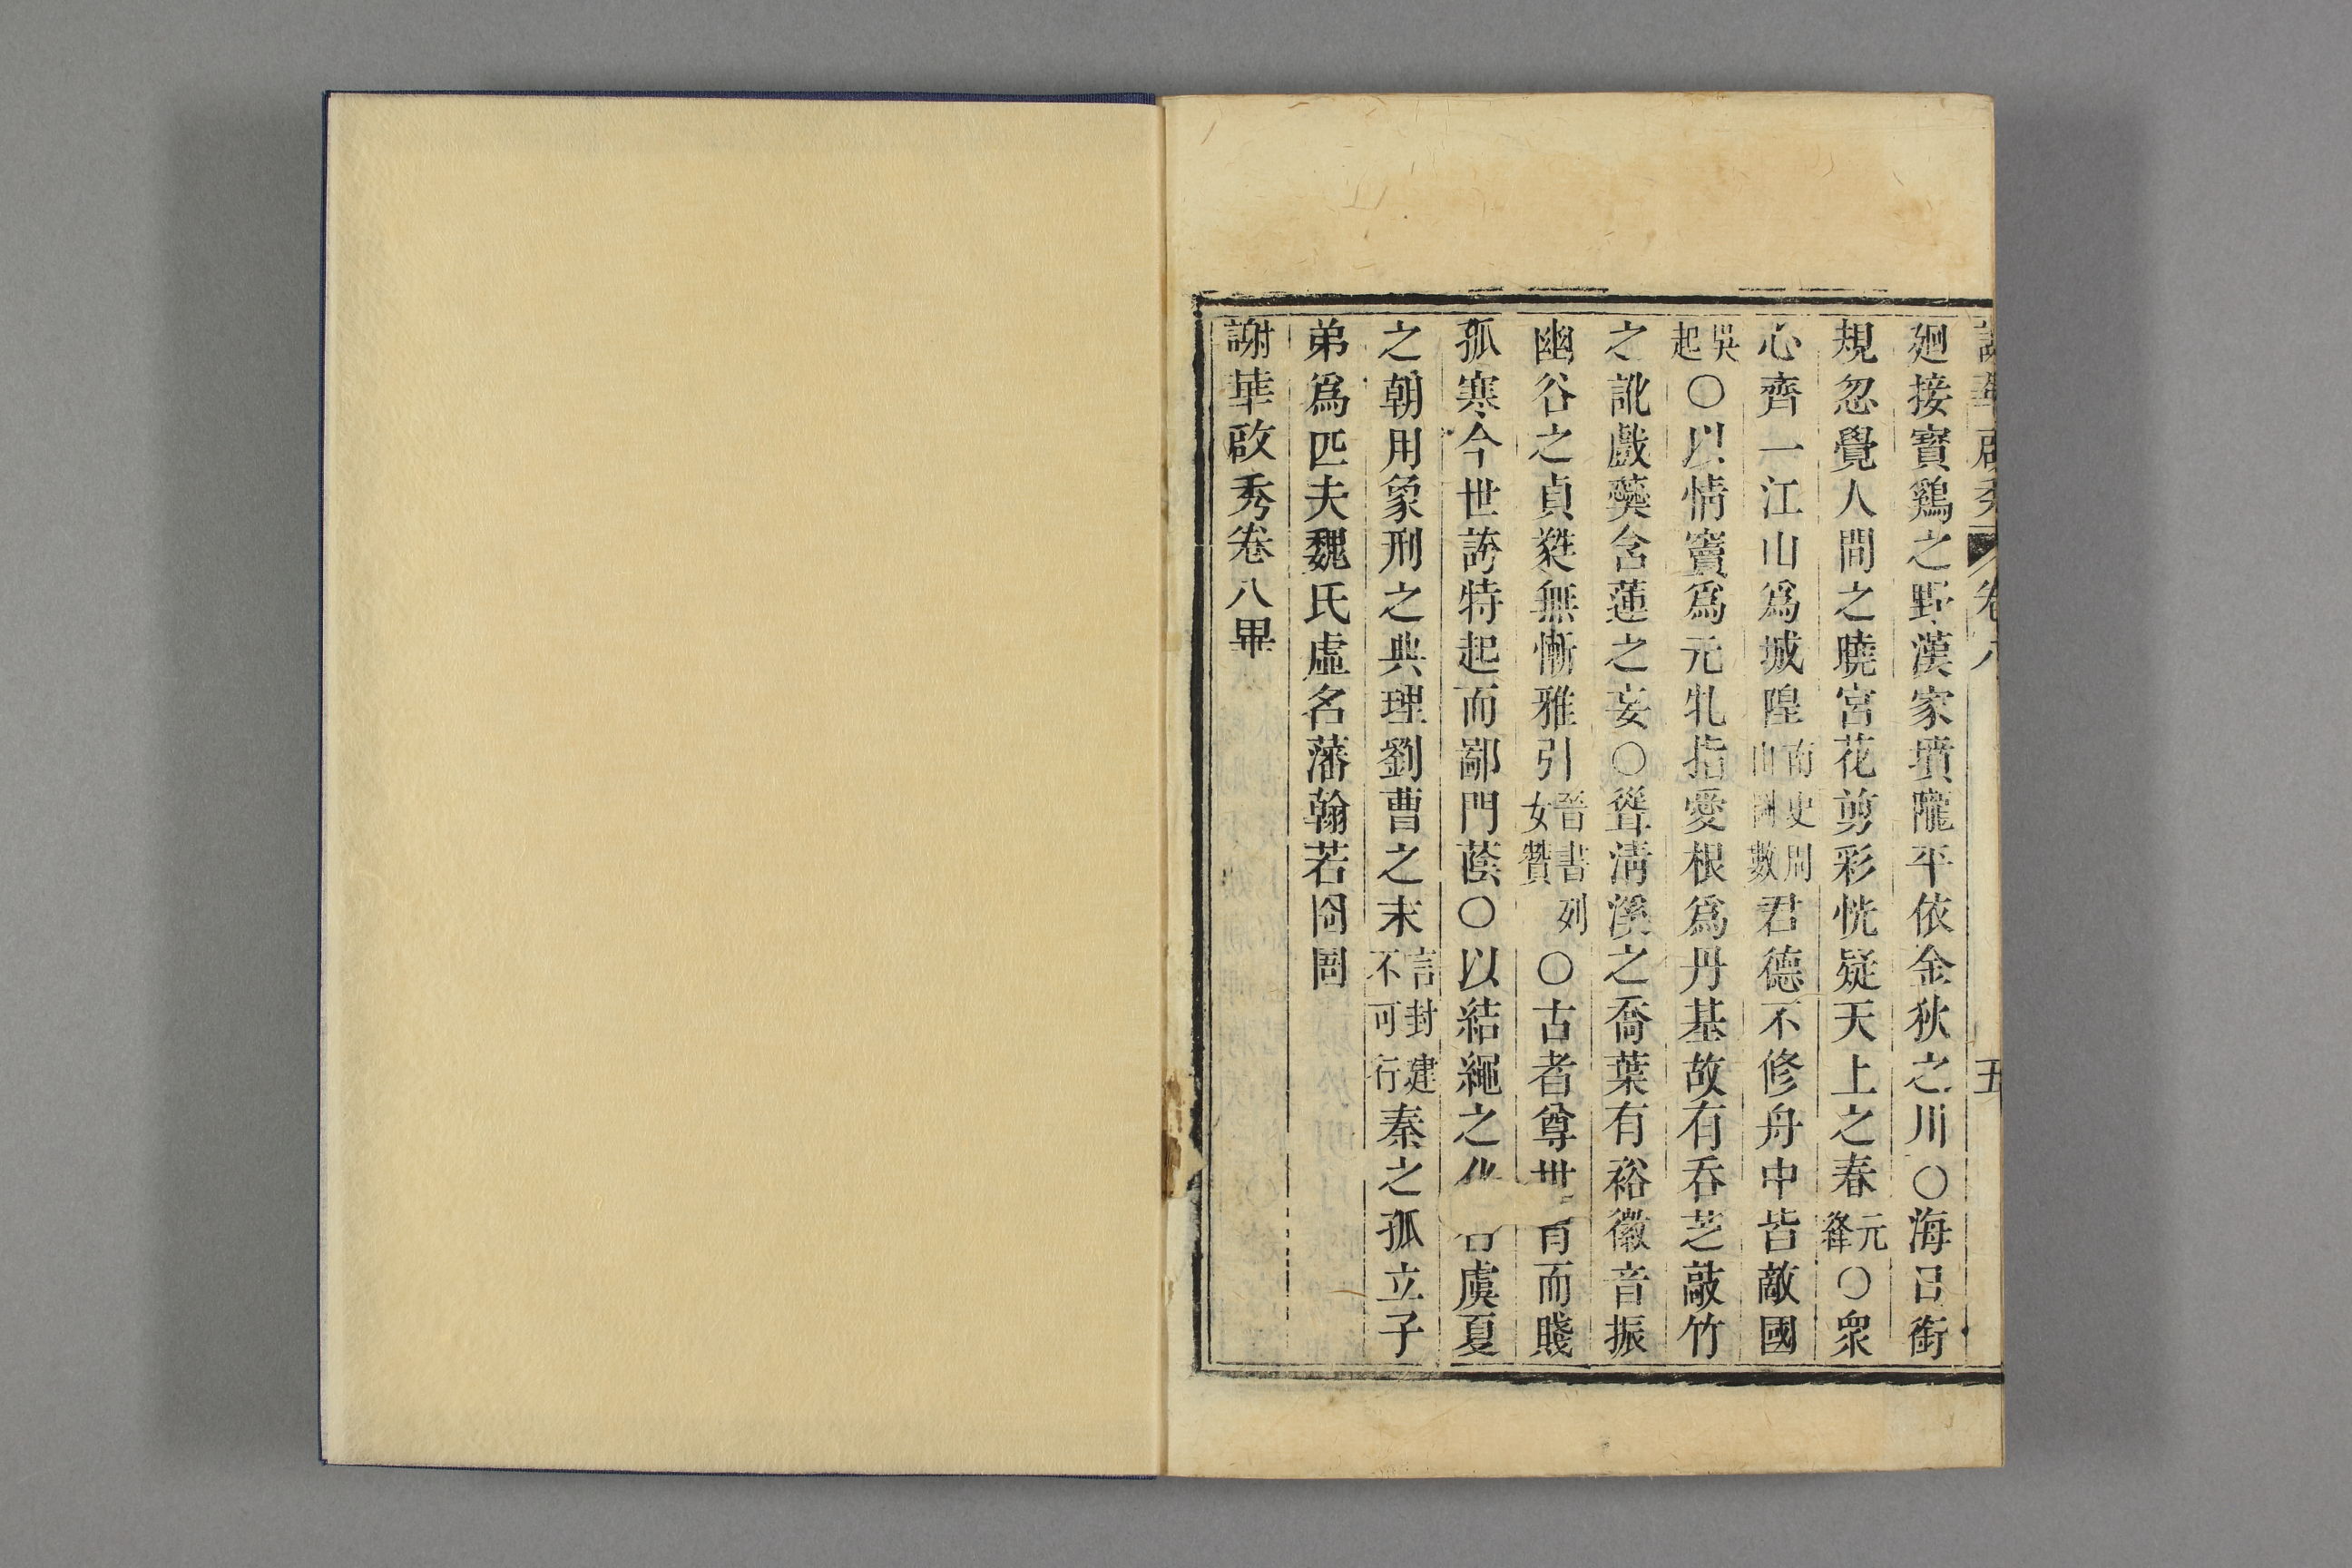 謝華啟秀 卷八 五
廻接寳鷄之野漢家墳隴平依金狄之川○海日銜
規忽覺人間之曉宮花剪彩恍疑天上之春元絳○衆
心齊一江山爲城隍南史周山圖數君德不修舟中皆敵國
吳起○以情竇爲元牝指愛根爲丹基故有吞芝敲竹
之訛戲藥含蓮之妄○聳淸溪之喬葉有裕徽音振
幽谷之貞蕤無慚雅引晉書列女贊○古者尊世胄而賤
孤寒今世誇特起而鄙門蔭○以結繩之化 虞夏
之朝用象刑之典理劉曹之末言封建不可行秦之孤立子
弟爲匹夫魏氏虛名藩翰若囹圄
謝華啟秀卷八畢